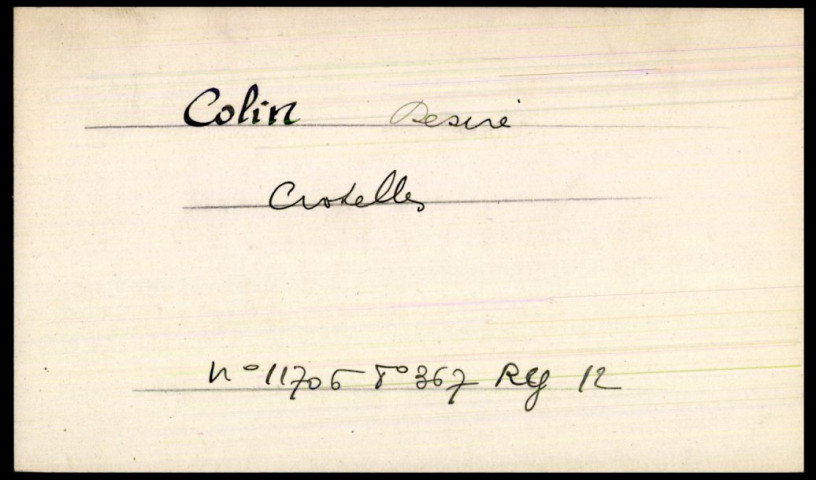 Colin Desiré
Crotelles
N° 11705 F° 367 Rg 12